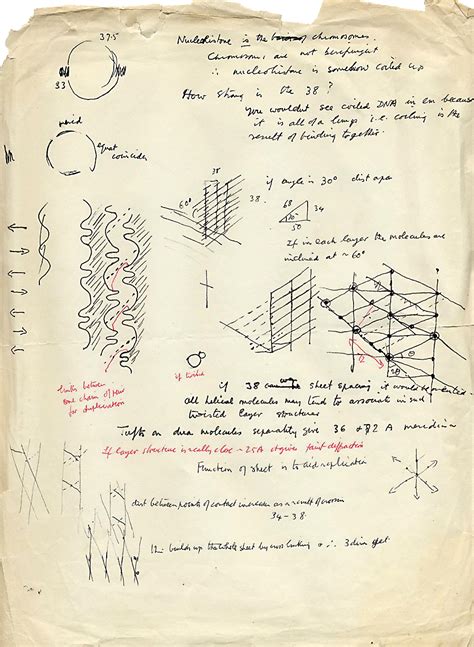 37.5
Nucleohistone is the of chromosomes.
Chromosomes are not birefringent
∴ nucleohistone is somehow coiled up
33
How strong is the 38?
You wouldnt see coiled DNA in em because
it is all of a lump i.e. coiling is the
result of binding together.
merid
equat
coincides
38
if angle is 30° dist apa
60°
68
34
50
If in each layer the molecules are
inclined at ~60°
θ
links between
one chain of
for duplication
if twisted
if 38 sheet spacing it would be oriented
all helical molecules may tend to associate in such
twisted layer structures
Tufts on dna molecules separately give 36 & 72 A meridian
If layer structure is really close ~25A it gives faint diffraction
Function of sheet is to aid replication
dist between points of contact increases as a result of
34-38.
builds up the whole sheet by cross linking & ∴ 3 dims get